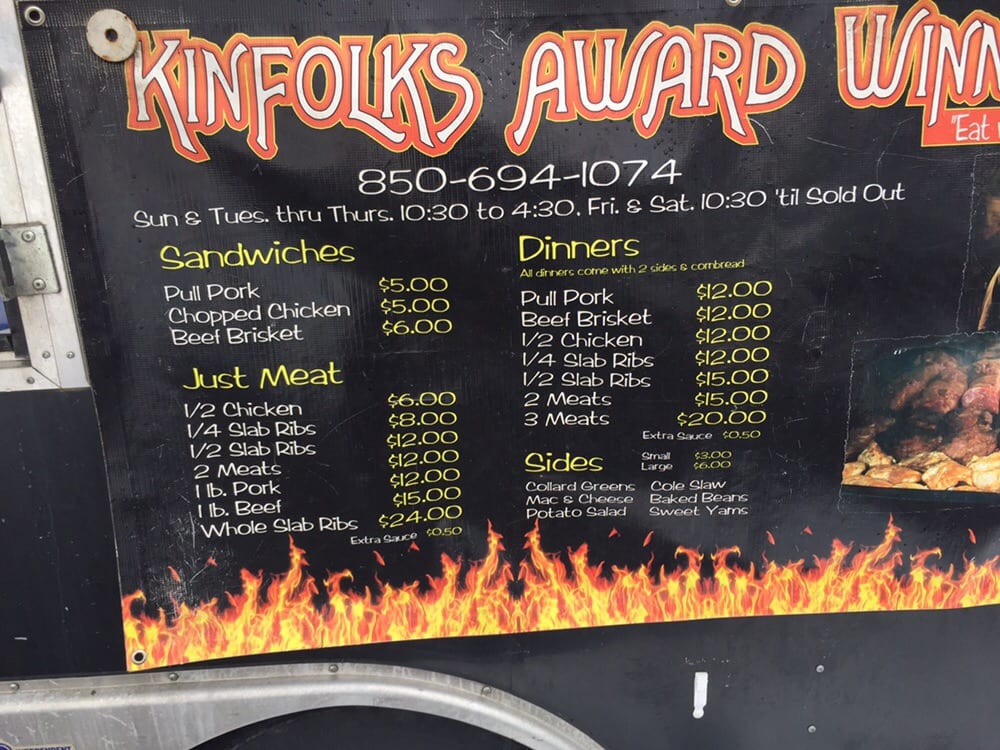 KINFOLKS AWARD WINN
"Eat
850-694-1074
Sun & Tues. thru Thurs. 10:30 to 4:30. Fri. & Sat. 10:30 'til Sold Out
Sandwiches
Pull Pork $5.00
Chopped Chicken $5.00
Beef Brisket $6.00
Just Meat
1/2 Chicken $6.00
1/4 Slab Ribs $8.00
1/2 Slab Ribs $12.00
2 Meats $12.00
1 lb. Pork $12.00
1 lb. Beef $15.00
Whole Slab Ribs $24.00
Extra Sauce $0.50
Dinners
All dinners come with 2 sides & cornbread
Pull Pork $12.00
Beef Brisket $12.00
1/2 Chicken $12.00
1/4 Slab Ribs $12.00
1/2 Slab Ribs $15.00
2 Meats $15.00
3 Meats $20.00
Extra Sauce $0.50
Sides
Small $3.00
Large $6.00
Collard Greens Cole Slaw
Mac & Cheese Baked Beans
Potato Salad Sweet Yams